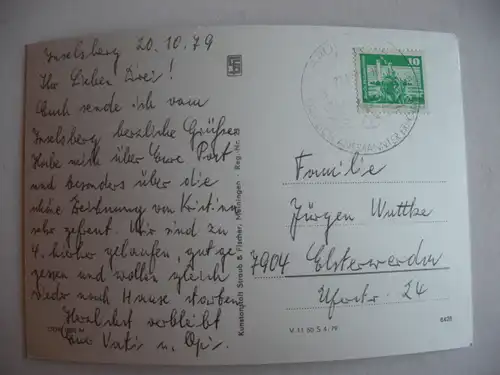 Inselsberg 20.10.79
Ihr Lieben Drei!
Auch sende ich vom
Inselsberg herzliche Grüße.
Habe mich über Eure Post
und besonders über die
schöne Zeichnung von Kristina
sehr gefreut. Wir sind zu
4. hierher gelaufen, gut ge-
gessen und wollen gleich
wieder nach Hause starten.
Herzlichst verbleibt
Euer Vati u. Opi.
Kunstanstalt Straub & Fischer, Meiningen Reg.-Nr.
10
Familie
Jürgen Wuttke
7904 Elsterwerda
Uferstr. 24
V 11 50 S 4/79
6425